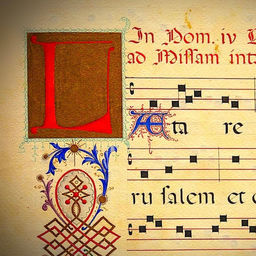 In Dom. iv Q
ad Missam int
L
Æta re
ru salem et c